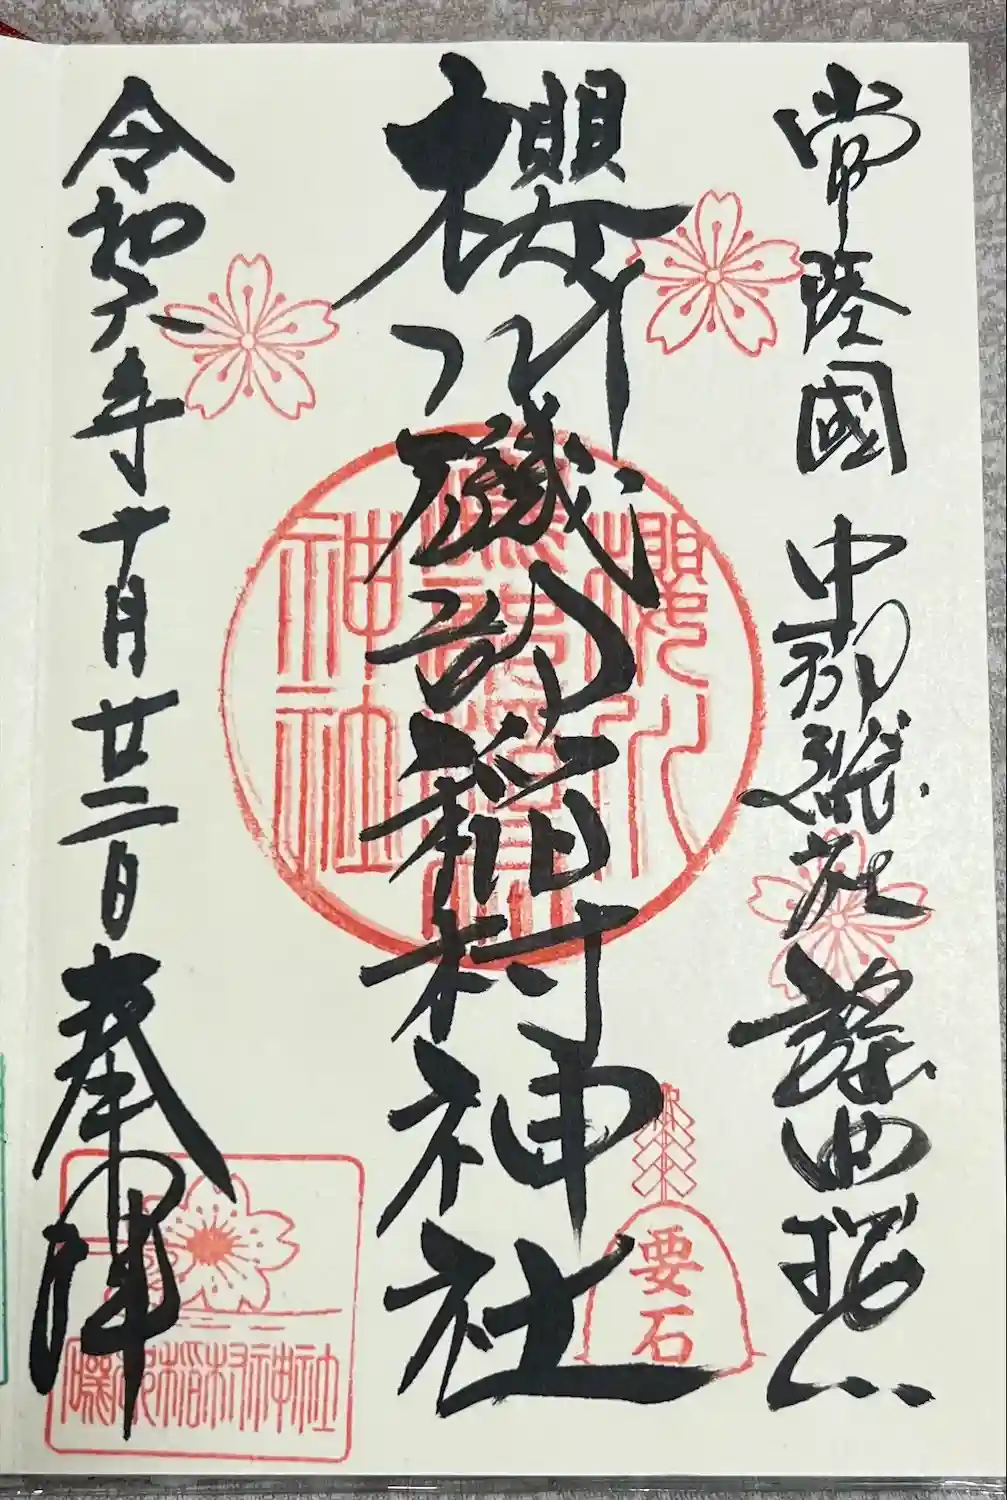 常陸國 中郡総社 謡曲櫻川
櫻川磯部稲村神社
櫻川
磯部稲村
神社
要石
令和六年十月廿二日 奉拝
磯部稲村神社